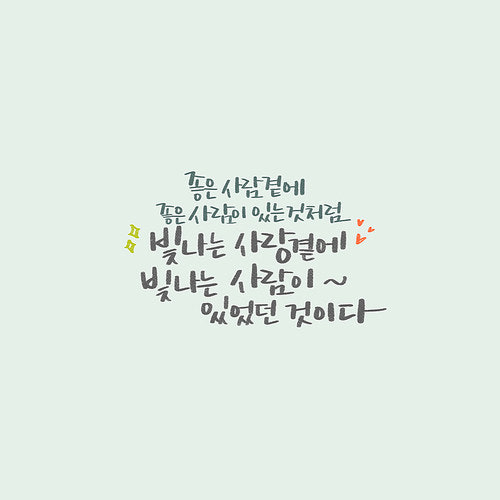 좋은 사람곁에
좋은 사람이 있는것처럼
빛나는 사랑곁에
빛나는 사람이 ~
있었던 것이다